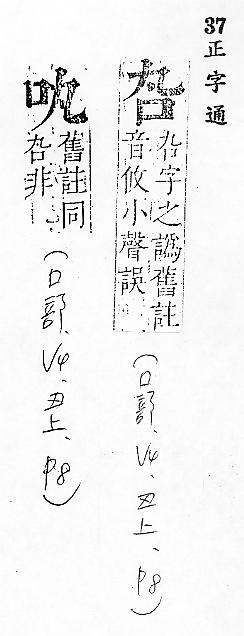 37正字通
叴字之譌舊註
音攸小聲誤
(口部、V4、丑上、p8)
舊註同
叴非
(口部、V4、丑上、p8)